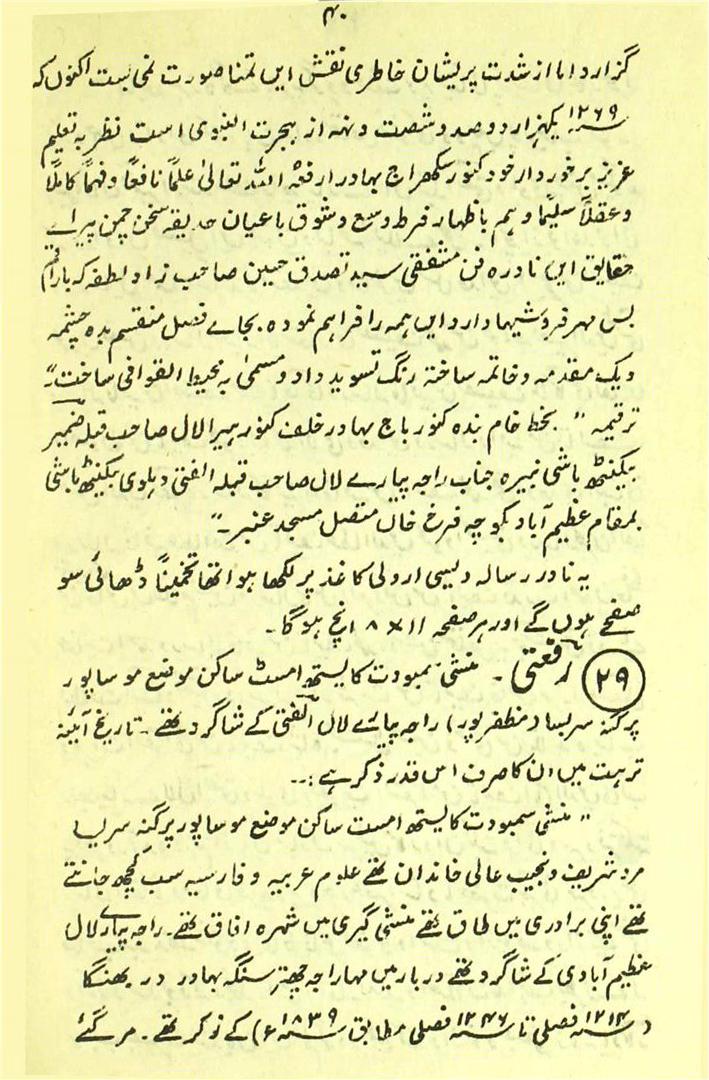 ۴۰
گزارد اما از شدت پریشان خاطری نقش ایں تمنا صورت نمی بست اکنوں کہ
۱۲۶۹ یکہزار دو صد و شصت و نہ از ہجرت النبوی است نظر بہ تعلیم
عزیز برخوردار خود کنور سکھراج بہادر ارفعہٗ اللہ تعالیٰ علماً نافعاً و فہماً کاملاً
و عقلاً سلیماً و ہم باظہار فرط وسع و شوق باعیان حدیقہ سخن چمن پیراے
حقایق ایں نادرہ فن مشفقی سید تصدق حسین صاحب زاد لطفہ کہ باراقم
بس مہر فروشیہا دارد ایں ہمہ را فراہم نمودہ۔ بجاے فصل منقسم بدہ چشمہ
و یک مقدمہ و خاتمہ ساختہ رنگ تسوید داد و مسمیٰ بہ محیط القوافی ساخت"۔
ترقیمہ "بخط خام بندہ کنور باج بہادر خلف کنور ہیرا لال صاحب قبلہ ضمیر
بیکنٹھ باشی نبیرہ جناب راجہ پیارے لال صاحب قبلہ الفتی دہلوی بیکنٹھ باشی
بمقام عظیم آباد بکوچہ فرخ خاں متصل مسجد عنبر۔"
یہ نادر رسالہ دیسی ارولی کاغذ پر لکھا ہوا تھا تخمیناً ڈھائی سو
صفحے ہوں گے اور ہر صفحہ ۱۱ × ۸ انچ ہوگا۔
۲۹ رفعتی۔ منشی سمبودت کایستھ امسٹ ساکن موضع موساپور
پرگنہ سریسا (مظفرپور) راجہ پیارے لال الفتی کے شاگرد تھے۔ تاریخ آئینہ
ترہت میں ان کا صرف اس قدر ذکر ہے :۔۔
"منشی سمبودت کایستھ امست ساکن موضع موساپور پرگنہ سریسا
مرد شریف و نجیب عالی خاندان تھے علوم عربیہ و فارسیہ سب کچھ جانتے
تھے اپنی برادری میں طاق تھے منشی گیری میں شہرہ آفاق تھے۔ راجہ پیارے لال
عظیم آبادی کے شاگرد تھے دربار میں مہاراجہ چھتر سنگہ بہادر دربھنگا
(۱۲۱۴ فصلی تا ۱۲۴۶ فصلی مطابق ۱۸۳۹ء) کے نوکر تھے۔ مر گئے